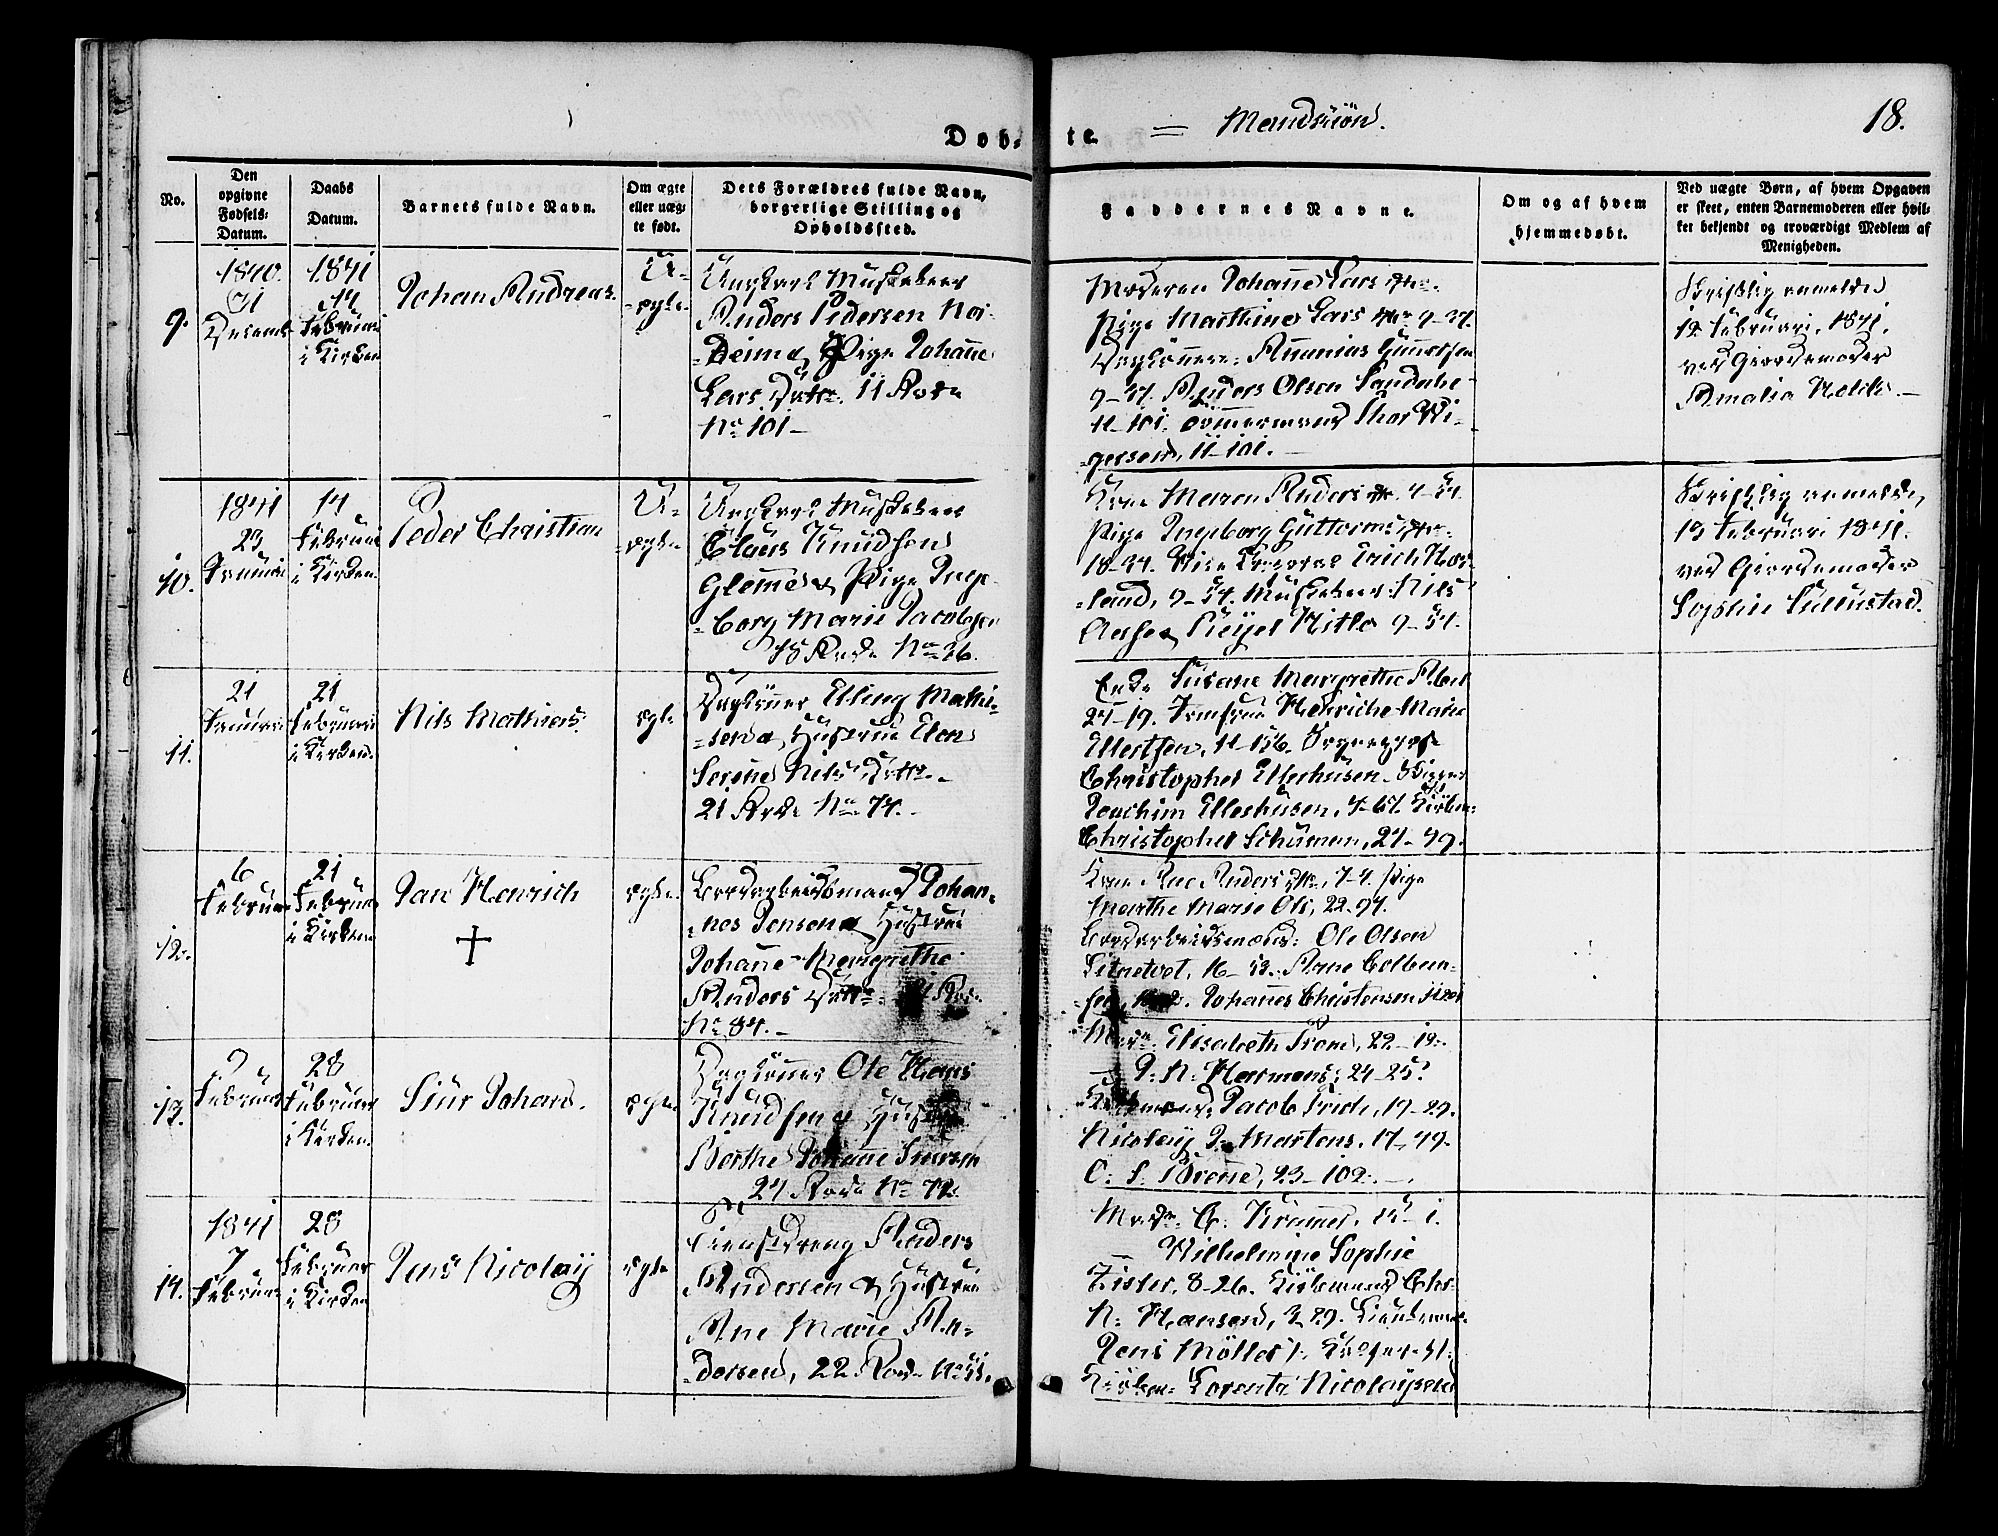 Døb- te. = Mandkiøn. 18.
No.
Den opgivne Fødsels-Datum.
Daabs Datum.
Barnets fulde Navn.
Om ægte eller uæg-te født.
Dets Forældres fulde Navn, borgerlige Stilling og Opholdssted.
Faddernes Navne.
Om og af hvem hjemmedøbt.
Ved uægte Børn, af hvem Opgaven er skeet, enten Barnemoderen eller hvil-ket bekjendt og troværdigt Medlem af Menigheden.
9.
1840.
31
Decemb
1841
14
Februari
i Kirken
Johan Andreas.
U-
ægte.
Ungkarl Musketeer
Anders Pedersen Nor-
-deim & Pige Johanne
Lars Datter. 11 Rode
No 101-
Moderen Johanne Lars Dtr.
Pige Marthine Lars Dtr 9-37.
Anders Olsen Sandvke
11-101. Tømmermand Thor Vi-
gersen, 11-101.
Skriftlig anmeldt
12 Februari, 1841.
ved Giordemoder
Amalia
10.
1841
23
Januari
14
Februari
i Kirken.
Peder Christian
U-
-ægte
Ungkarl Musketeer
Claus Knudsen
Glome & Pige Inge-
-borg Marie Jacobsen
15 Rode No 36.
Kone Maren Anders Dtr. 4-51.
Pige Ingeborg Guttorms Dtr.
-land, 9-54. Musketeer Nils
Skriftlig anmeldt,
13 Februari 1841.
ved Giordemoder
Sophie Tillustad.
11.
21
Januari
21
Februari
i Kirken.
Nils Mathias.
ægte
Dagløner Elling Mathi-
-sen & Hustrue Elen
Serine Nils Dattr.
21 Rode No 74.
Enke Susane Margrethe Abel
24-19. Jomfrue Henriche Marie
Ellertsen, 11-156.
Christopher Ellerhusen.
Joachim Ellerhusen, 4-67.
Christopher Schuman, 21-49.
12.
6
Februar
21
Februar
i Kirken
Jan Henrich
+
ægte.
Bordarbeidsmand Johan-
-nes Jensen & Hustrue
Johanne Margrethe
Anders Datter. Rode
No 84.
Kone Ane Anders Dtr, 7-4. Pige
Marthe Marie Ols, 22-97.
Bordarbeidsmand: Ole Olsen
16-53. Arne Colben-
-sen, Johannes Christensen
13.
7
Februar
28
Februar
i Kirken.
Siur Johan.
ægte
Dagløner Ole Hans
Knudsen & Hustrue
Berthe Johanne Siursen
24 Rode No 72.
Mad. Elisabeth Trone, 22-19.
- J. N. Harmens, 24-25.
Kiøbmand Jacob Frich, 17-29.
Nicolay J. Martens, 17-49.
O. S. Brene, 23-102.
14.
1841
7
Februar
28
Februar
i Kirken
Jens Nicolay
ægte
Tienestdreng Anders
Andersen & Hustrue
Ane Marie An-
-dersen, 22 Rode No 55.
Mad. C. Kramer, 15-1.
- Wilhelmine Sophie
Fister, 8-26. Kiøbmand Chr.
N. Hansen, 3-29.
Jens Møller
Lorentz Nicolaysen